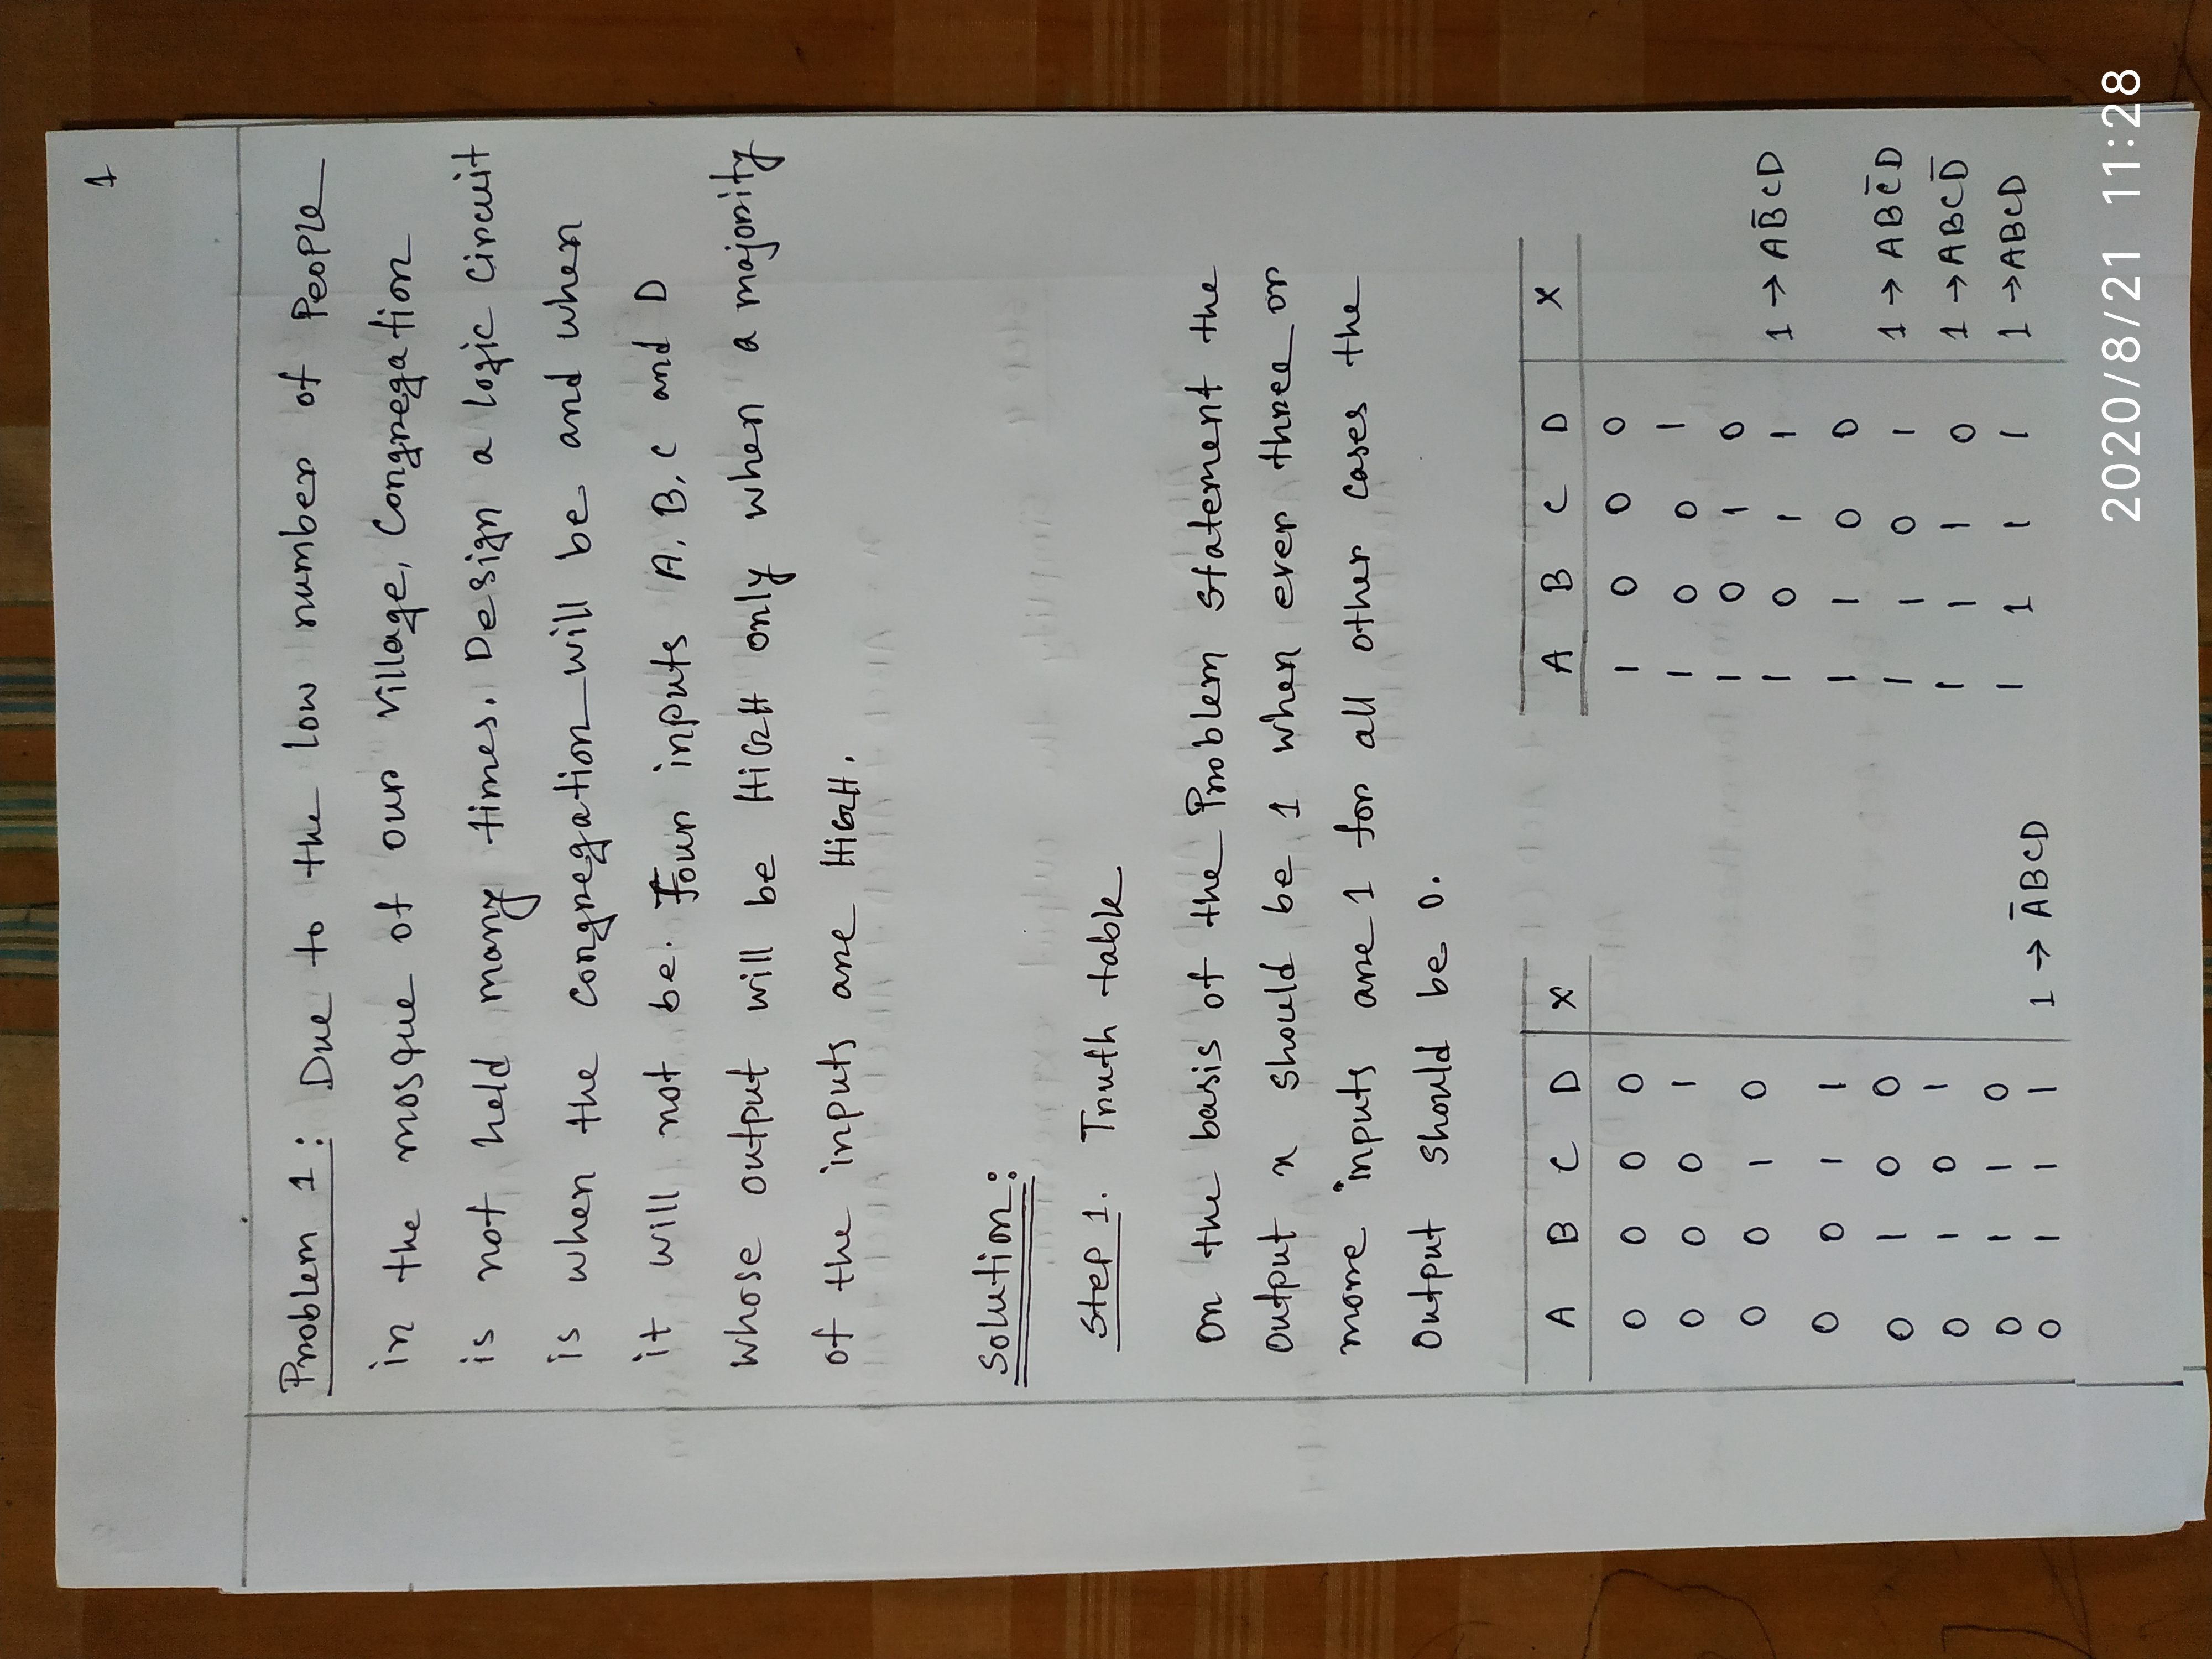 1
Problem 1: Due to the low number of People
in the mosque of our village, Congregation
is not held many times. Design a logic circuit
is when the congregation will be and when
it will not be. Four inputs A, B, C and D
whose output will be HiGH only when a majority
of the inputs are HiGH.
Solution:
Step 1. Truth table
On the basis of the Problem statement the
output x should be 1 when ever three or
more inputs are 1 for all other cases the
Output should be 0.
A B C D X
0 0 0 0
0 0 0 1
0 0 1 0
0 0 1 1
0 1 0 0
0 1 0 1
0 1 1 0
0 1 1 1 1 → A̅BCD
A B C D X
1 0 0 0
1 0 0 1
1 0 1 0
1 0 1 1 1 → AB̅CD
1 1 0 0
1 1 0 1 1 → ABC̅D
1 1 1 0 1 → ABCD̅
1 1 1 1 1 → ABCD
2020/8/21 11:28